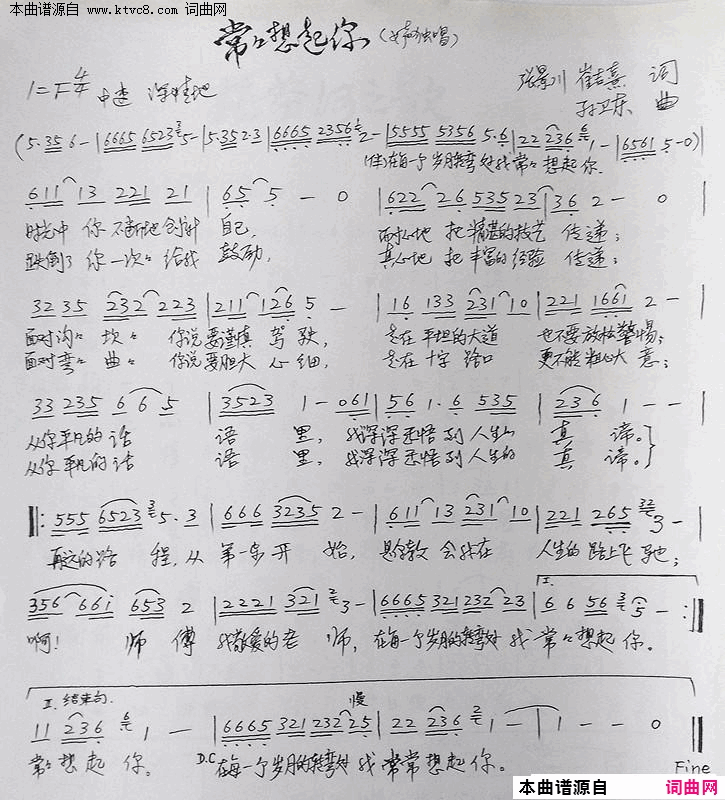 本曲谱源自
www.ktvc8.com 词曲网
常常想起你(女声独唱)
1=F 4/4 中速 深情地
张景川 崔吉熹 词
孙卫东 曲
(5·35 6-|6665 6523 5-|5·35 2·3|6665 2356 2-|5555 5356 5·6|22 236 1-|6561 5-0)
(伴)在每一个岁月转弯处我常常想起你.
611 13 221 21|65 5 - 0|622 26 535 23|36 2 - 0|
时光中 你不断地创新 自己, 耐心地 把精湛的技艺 传递;
跌倒了 你一次次给我 鼓励, 真心地 把丰富的经验 传递;
32 35 232 223|211 126 5 -|16 133 231 10|221 1661 2 -|
面对沟沟 坎坎 你说要谨慎 驾驶, 走在平坦的大道 也不要放松警惕;
面对弯弯 曲曲 你说要胆大 心细, 走在十字路口 更不能粗心大意;
33 235 6 6 5|3523 1-061|56 1·6 535|236 1 - -|
从你平凡的话 语 里, 我深深感悟到人生的 真 谛。
从你平凡的话 语 里, 我深深感悟到人生的 真 谛。
‖:555 6523 5·3|666 3235 2-|611 13 231 10|221 265 3-|
再远的路 程,从 第一步开 始, 是你教会我在 人生的路上飞驰;
I.
356 661 653 2|2221 321 3-|6665 321 232 23|6 6 56 5 - :‖
啊! 师 傅 我敬爱的老 师, 在每一个岁月的转弯处 我 常常想起你。
II. 结束句. 慢
11 236 1 -|6665 321 232 25|22 236 1 -|1 - - 0‖
常常想起 你。 D.C 在每一个岁月的转弯处 我 常常想起你。
Fine
本曲谱源自 词曲网